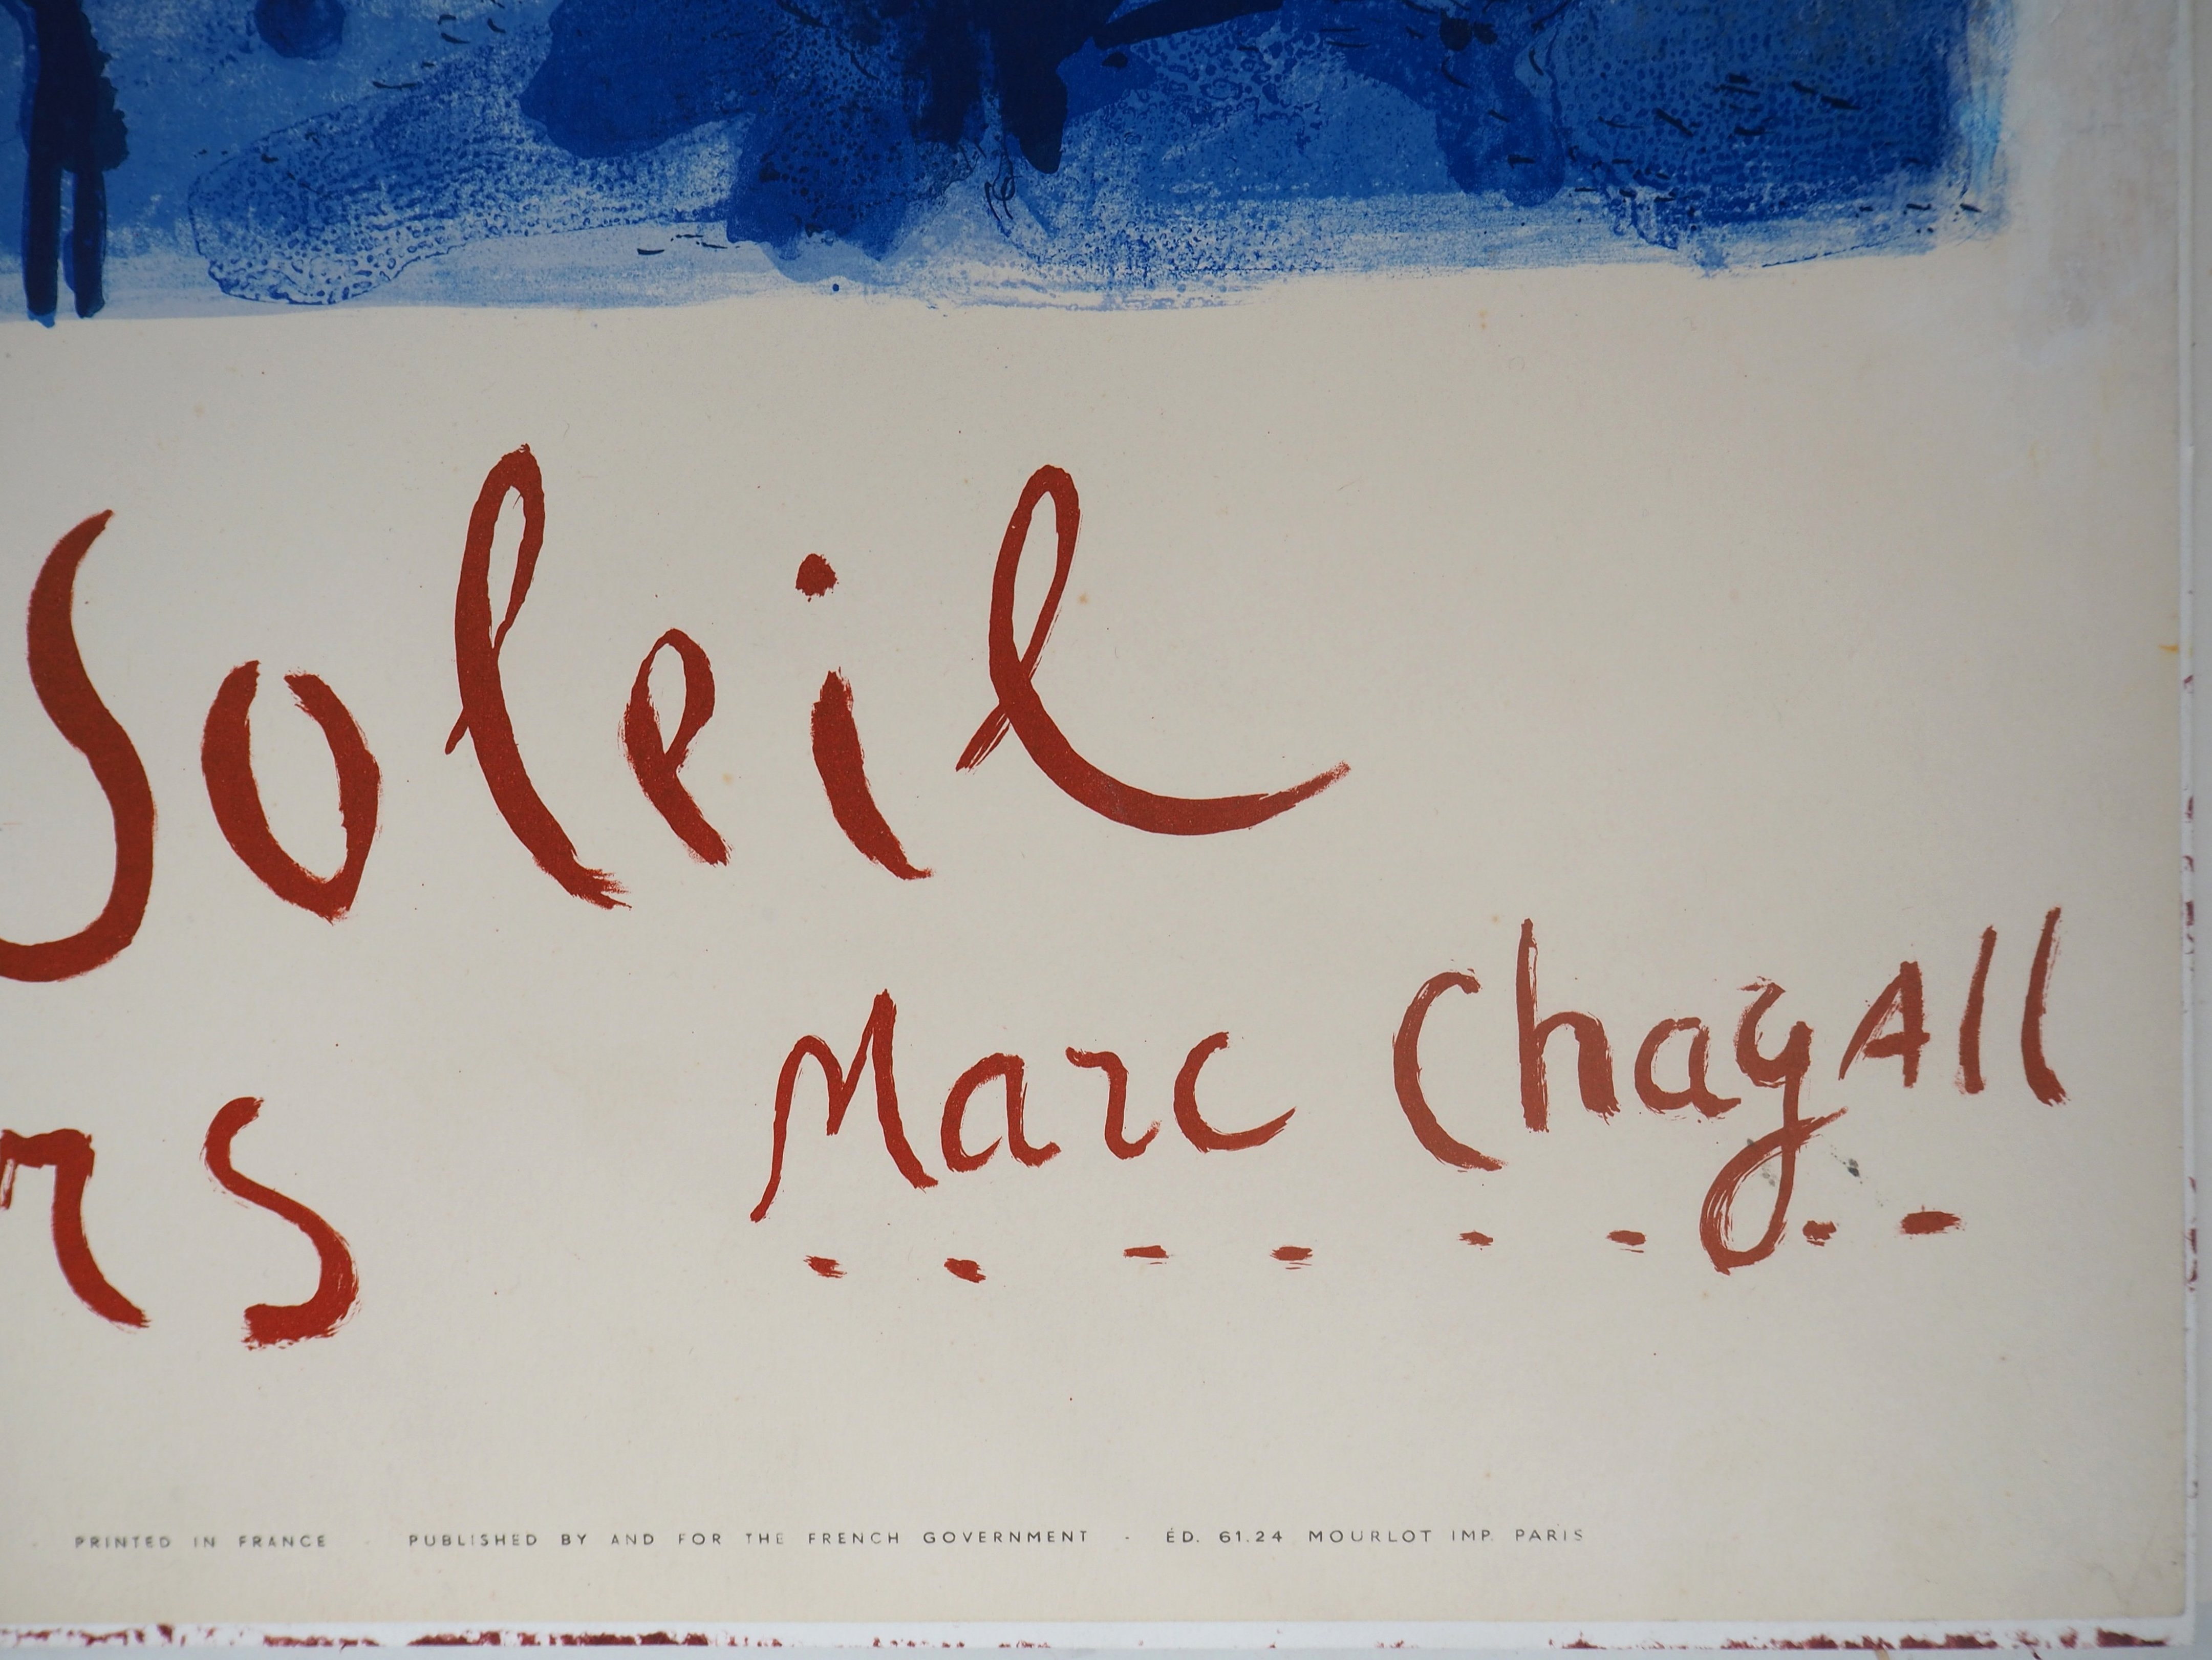 Soleil
Marc Chagall
rs
PRINTED IN FRANCE PUBLISHED BY AND FOR THE FRENCH GOVERNMENT - ÉD. 61.24 MOURLOT IMP. PARIS